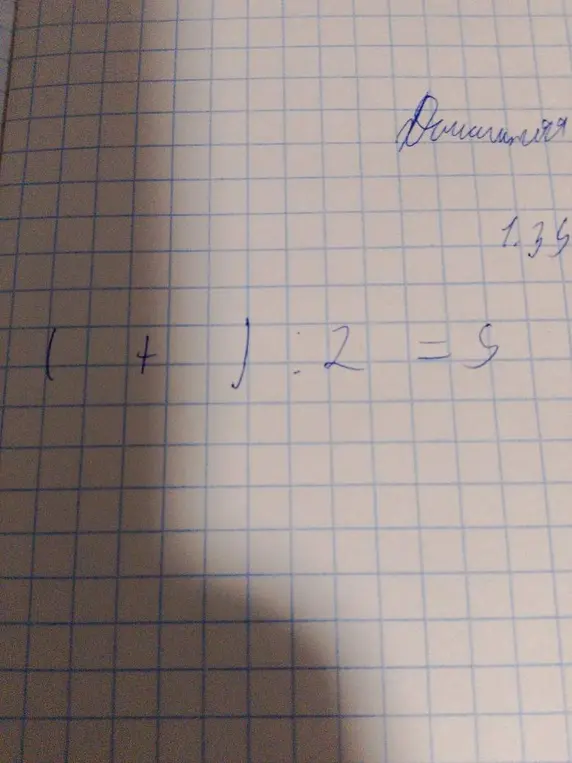 Домашняя
1.35
( + ) : 2 = 5